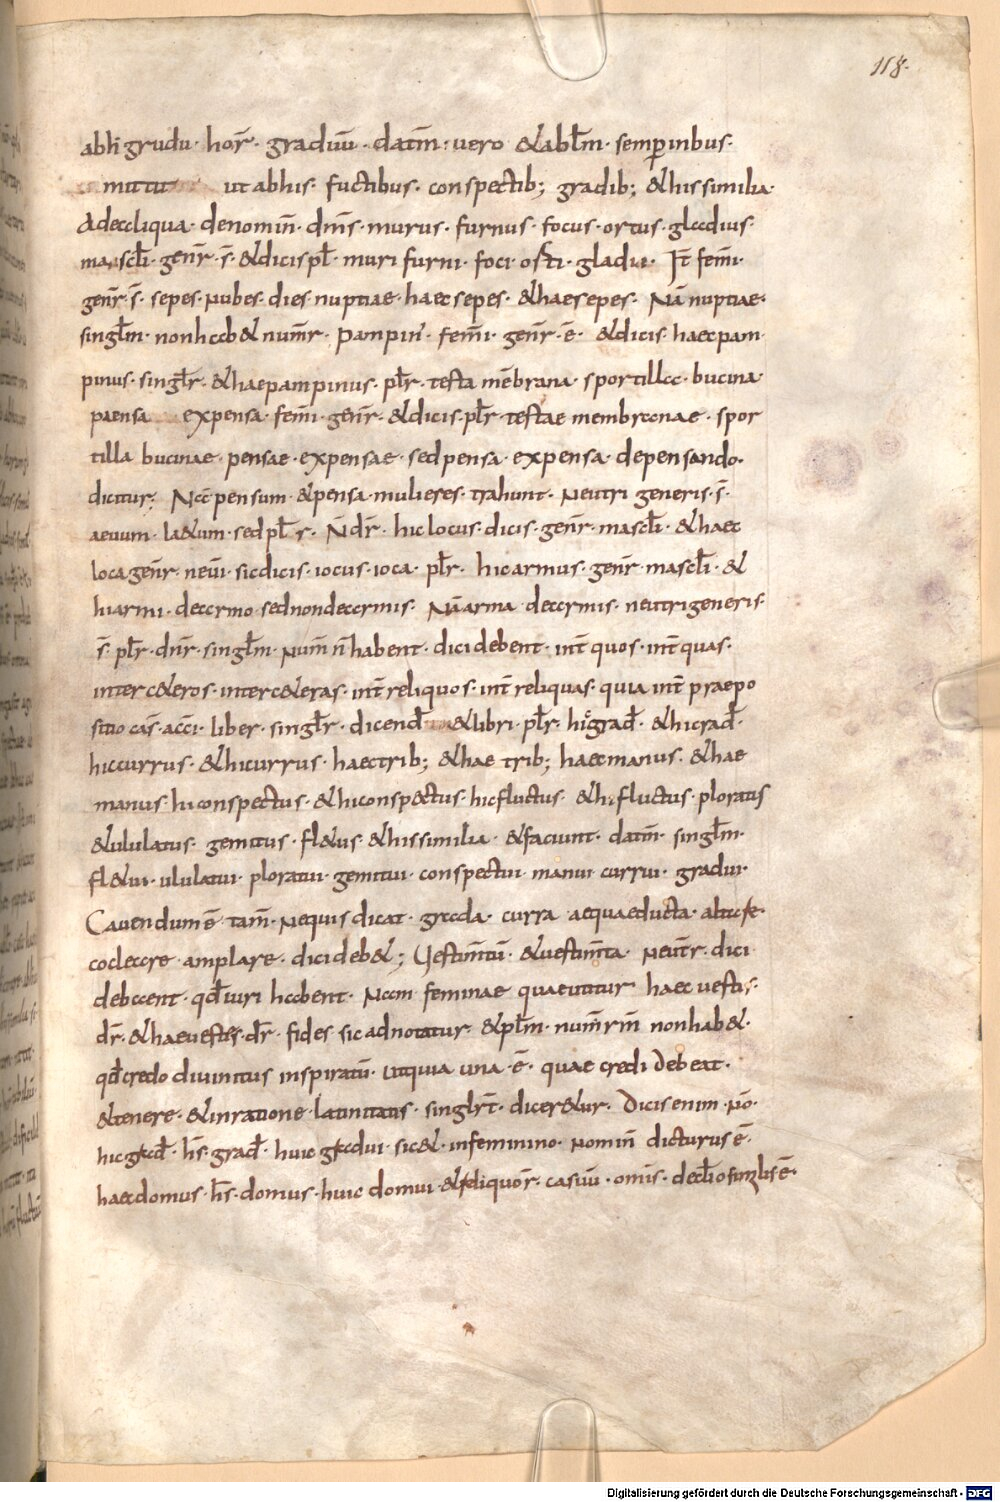 118.
abhi gradu · hor̄ · graduū · datm̄ · vero &ablm̄ · semp̱ inbus ·
mittit ut abhis · fructibus · conspectib; gradib; &hissimilia ·
Adecliqua · denomin̄ · dm̄s · murus · furnus · focus · ortus · gladius ·
mascl̄i · gen̄r · s̄ · &dicispl̄ · muri furni · foci · osti · gladii · It̄ fem̄i ·
gen̄r · s̄ · sepes · nubes · dies nuptiae · haec sepes · &haesepes · Nā nuptiae ·
singl̄m · nonhab& num̄r · pampin̄ · fem̄i · gen̄r · ē · &dicis · haecpam
pinus · singl̄r · &haepampinus · pl̄r · testa mēbrana · sportilla · bucina ·
paensa expensa · fem̄i · gen̄r · &dicis · pl̄r · testae membranae · spor
tilla bucinae · pensae · expensae · sedpensa · expensa · depensando ·
dicitur; Nā pensum · &pensa · mulieres · trahunt · neutri generis · s̄ ·
aeuum · la&um · sedpl̄ s · N̄ dr̄ · hic locus · dicis · gen̄r · mascl̄i · &haec
loca gen̄r · neūi · sicdicis · iocus · ioca · pl̄r · hicarmus · gen̄r · mascl̄i · &
hiarmi · decarmo · sednondecarmis · Nā arma decarmis · neutrigeneris ·
s̄ · pl̄r · dn̄r · singl̄m · num̄ n̄ habent · dici debent · int̄ quos · int̄ quas ·
inter c&eros · inter c&eras · int̄ reliquos · int̄ reliquas · quia int̄ praepo
sitio cas̄ · acc̄i · liber · singl̄r · dicend̄ &libri · pl̄r · hic grad̄ · &hi grad̄ ·
hiccurrus · &hicurrus · haectrib; &hae trib; haecmanus · &hae
manus · hiconspectus · &hiconspectus · hicfluctus · &hi fluctus · ploratus
&ululatus · gemitus · fl&us · &hissimilia · &faciunt · datm̄ · singl̄m ·
fl&ui · ululatui · ploratui · gemitui · conspectui · manui currui · gradui ·
Cauendum ē · tam̄ · nequis dicat · grada · curra aequaeducta ·
dici deb&; Uestim̄tū · &uestim̄ta · neūtr · dici
debeent · qd̄ iuri habent · Nam feminae quaeutitur haec uestis ·
dr̄ · &haeuestes · dr̄ · fides · sic adnotatur · &pl̄m · num̄rm̄ nonhab& ·
qd̄credo diuinitus inspiratū · utquia una · ē · quae credi debeat ·
&tenere · &inratione · latinitatis · singlr̄t · dicer&ur · Dicis enim · no ·
hic grad̄ · h̄s · grad̄ · huic gradui · sic& · infeminino · nomin̄ dicturus ē ·
haecdomus · h̄s · domus · huic domui · &reliquor̄ · casuū · omīs · decl̄io similis ē ·
Digitalisierung gefördert durch die Deutsche Forschungsgemeinschaft - DFG